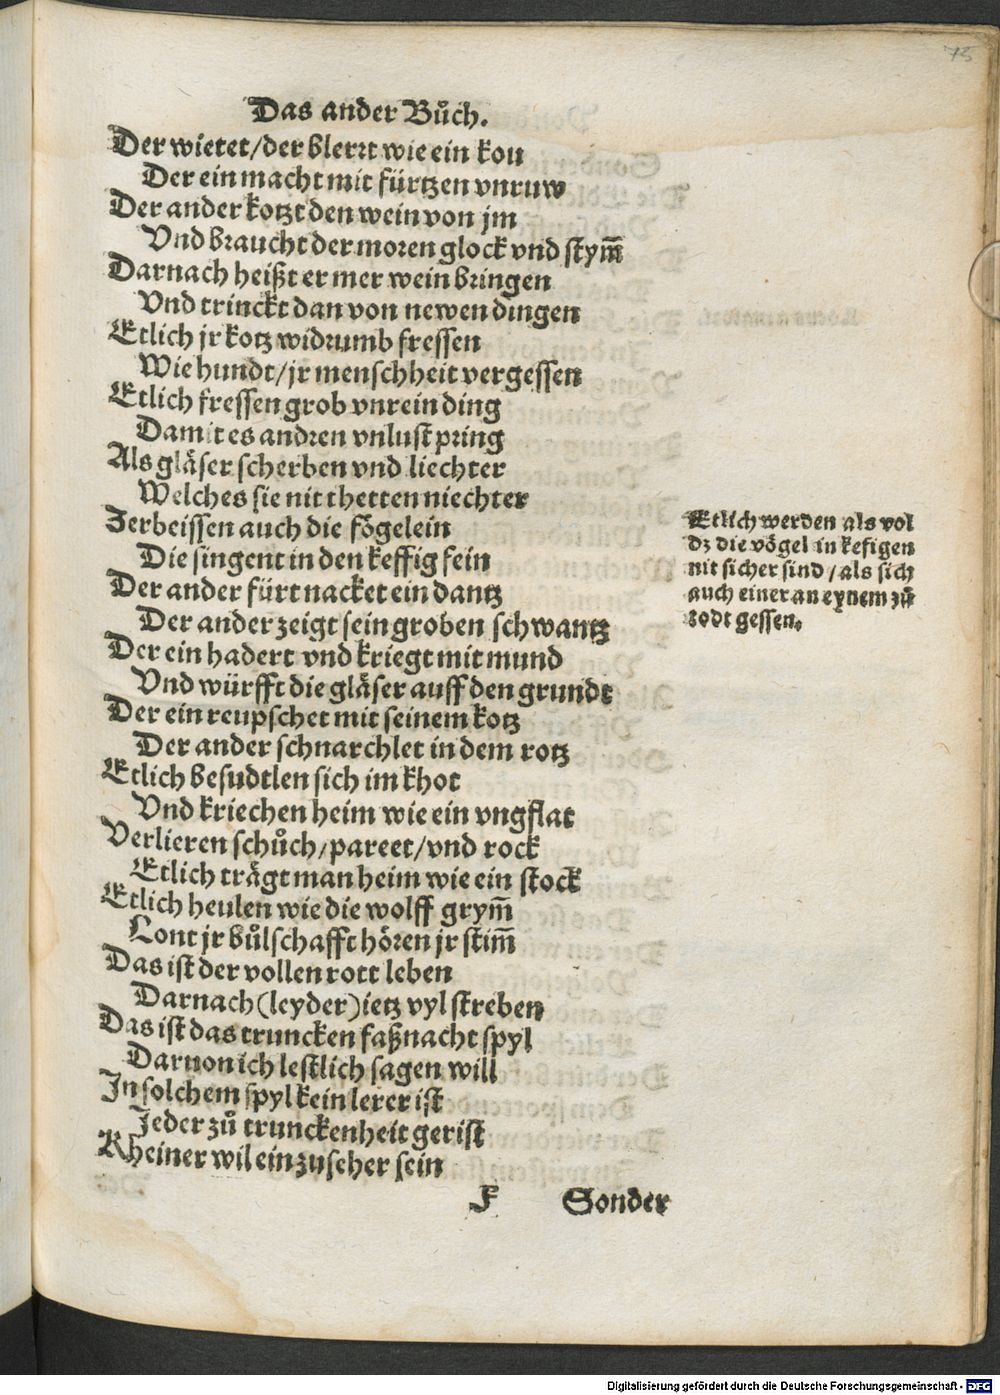 75
Das ander Bůch.
Der wietet/der blerrt wie ein kou
Der ein macht mit fürtzen vnruw
Der ander kotzt den wein von jm
Vnd braucht der moren glock vnd stym̄
Darnach heißt er mer wein bringen
Vnd trinckt dan von newen dingen
Etlich jr kotz widrumb fressen
Wie hundt/jr menschheit vergessen
Etlich fressen grob vnrein ding
Damit es andren vnlust pring
Als gläser scherben vnd liechter
Welches sie nit thetten niechter
Zerbeissen auch die fögelein
Die singent in den keffig fein
Der ander fürt nacket ein dantz
Der ander zeigt sein groben schwantz
Der ein hadert vnd kriegt mit mund
Vnd würfft die gläser auff den grundt
Der ein reupschet mit seinem kotz
Der ander schnarchlet in dem rotz
Etlich besudtlen sich im khot
Vnd kriechen heim wie ein vngflat
Verlieren schůch/pareet/vnd rock
Etlich trägt man heim wie ein stock
Etlich heulen wie die wolff grym̄
Lont jr bůlschafft hören jr stim̄
Das ist der vollen rott leben
Darnach (leyder) ietz vyl streben
Das ist das truncken faßnacht spyl
Daruon ich lestlich sagen will
In solchem spyl kein lerer ist
Jeder zů trunckenheit gerist
Rheiner wil ein zuseher sein
F Sonder
Etlich werden als vol
dz die vögel in kefigen
nit sicher sind/als sich
auch einer an eynem zů
todt gessen.
Digitalisierung gefördert durch die Deutsche Forschungsgemeinschaft - DFG